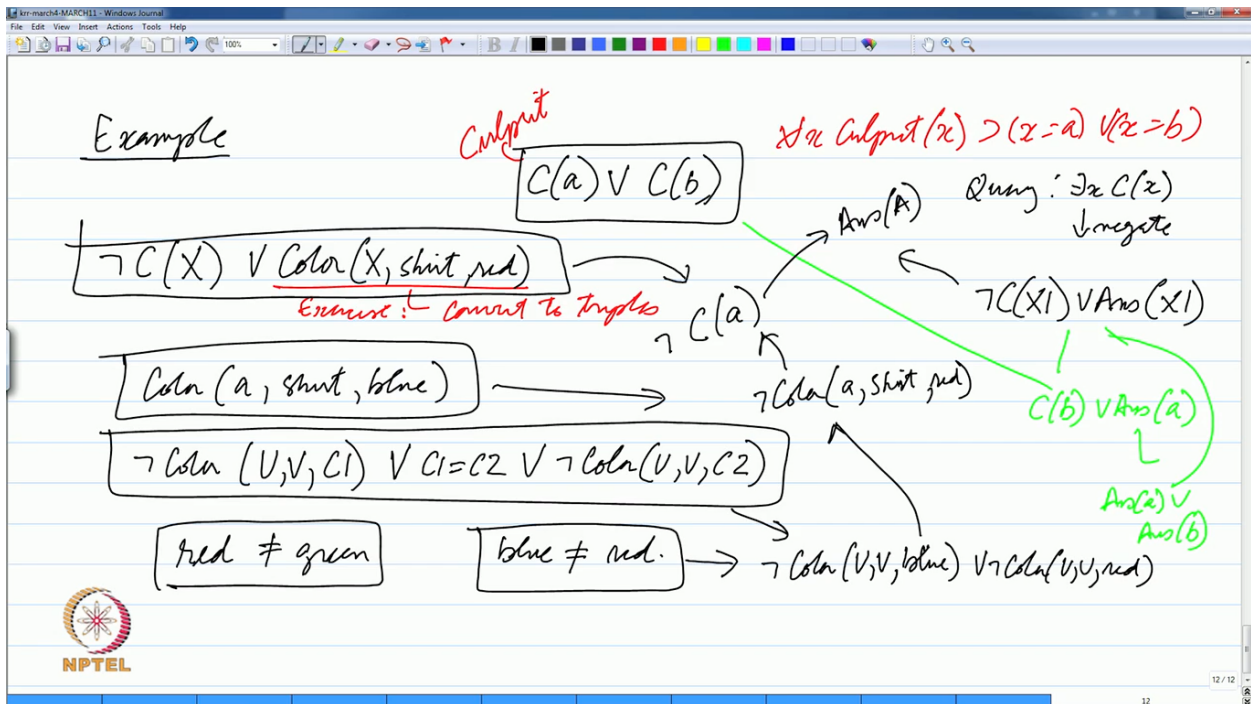 krr-march4-MARCH11 - Windows Journal
File Edit View Insert Actions Tools Help
100%
B I
Example
Culprit
∀x Culprit(x) ⊃ (x=a) ∨ (x=b)
C(a) ∨ C(b)
Query : ∃x C(x)
↓ negate
Ans(A)
¬C(X) ∨ Color(X, shirt, red)
Exercise :- Convert to triples
¬C(a)
¬C(X1) ∨ Ans(X1)
Color(a, shirt, blue)
¬Color(a, shirt, red)
C(b) ∨ Ans(a)
¬Color (U,V,C1) ∨ C1=C2 ∨ ¬Color(U,V,C2)
Ans(a) ∨
Ans(b)
red ≠ green
blue ≠ red.
¬Color(U,V,blue) ∨ ¬Color(U,V,red)
NPTEL
12 / 12
12